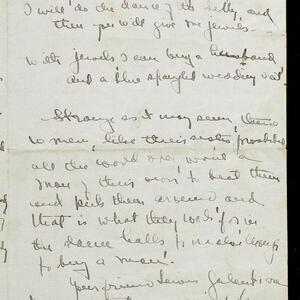 I will do the dance of the belly, and
then you will give me jewels.
With jewels I can buy a husband
and a blue spangled wedding veil
Strange as it may seem, these
women, like their sisters
all the world over, want a
man of their own to beat them
and pick them around and
that is what they work for in
the dance halls to make enough
to buy a man!
Your friend